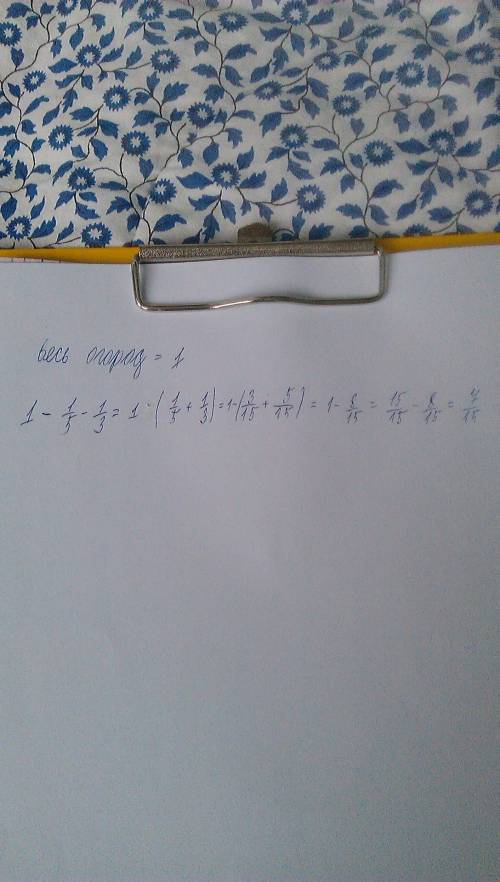 Весь огород = 1
1 - 1/5 - 1/3 = 1 - (1/5 + 1/3) = 1 - (3/15 + 5/15) = 1 - 8/15 = 15/15 - 8/15 = 7/15